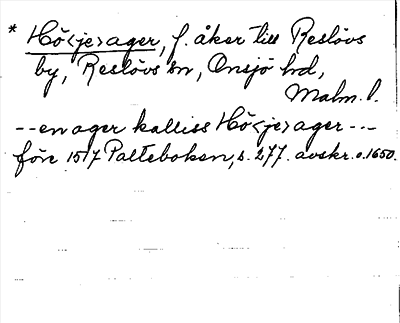 * Hö<je>ager, f. åker till Reslövs
by, Reslövs sn, Onsjö hd,
Malm. l.
-- en ager kalliss Hö<je>ager ---
före 1517 Palteboken, s. 277. avskr. o. 1650.